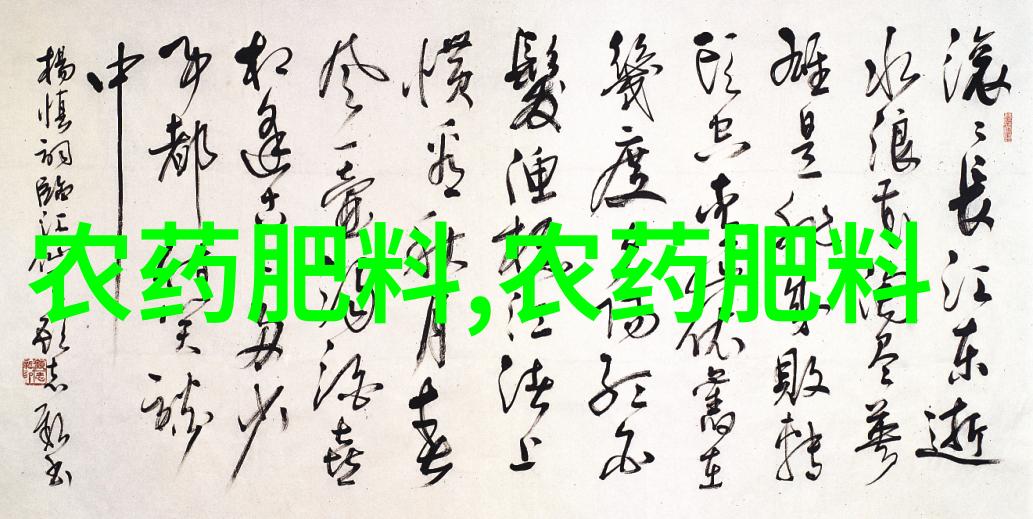 滚〻長江东逝
水浪花淘尽英
雄是非成败轉
头空青山依舊在
幾度夕阳红白
髮渔樵江渚上
惯看秋月春
风一壶浊酒喜
相逢古今多少
事都付笑谈
中
楊慎詞臨江仙 志毅书
农药肥料,农药肥料